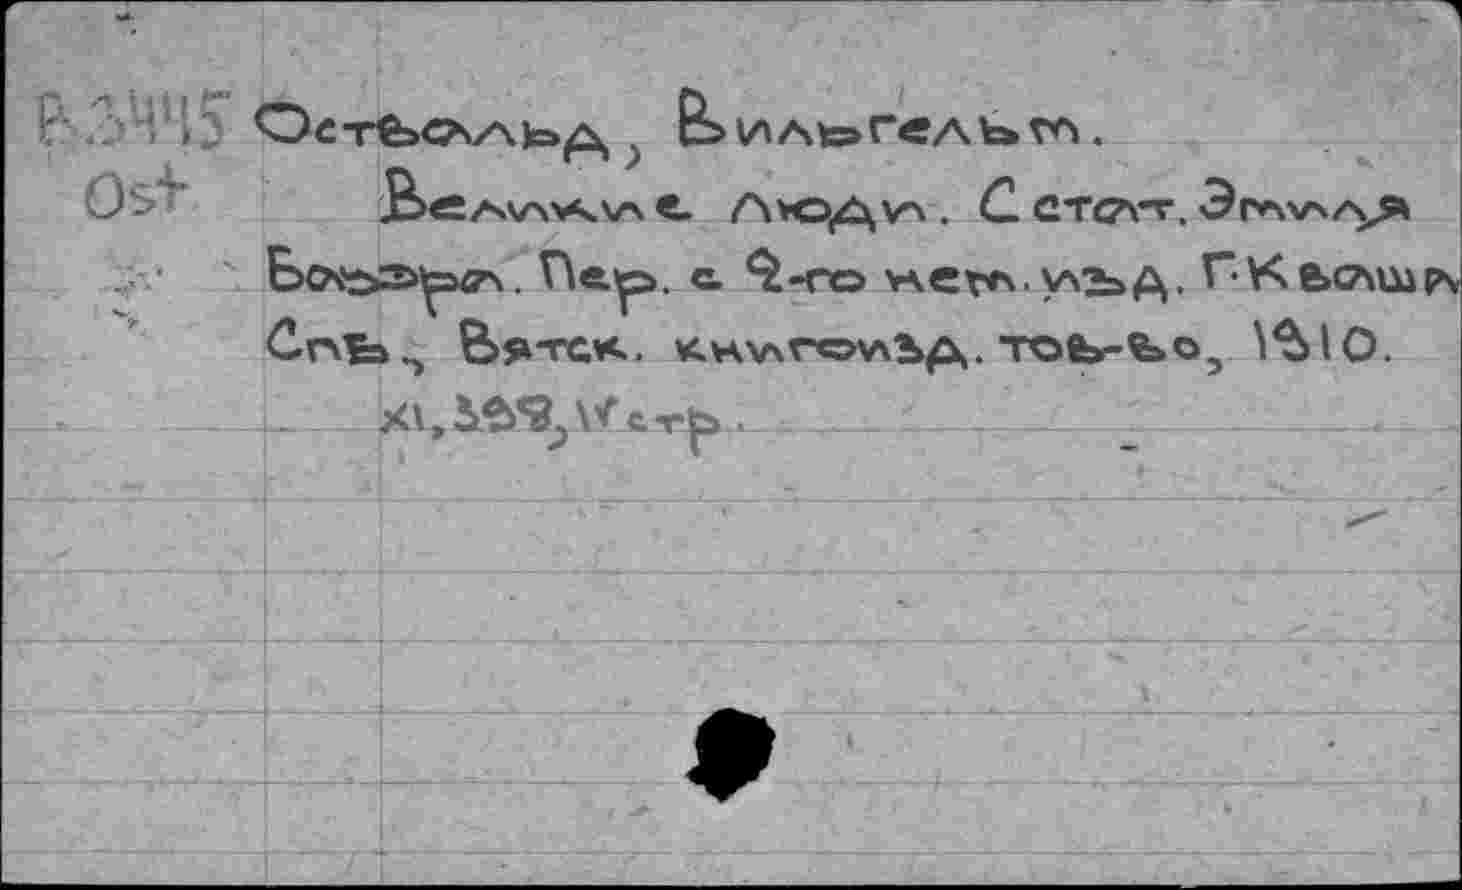 P.3445 Оствальд, Вильгельм.
Ost Великие люди. С стат. Эмиля
Боаэра. Пер. с 2-го нем. изд. Г. Кваша
Спб., Вятск. книгоизд. тов-во, 1910.
XI, 389, V стр.